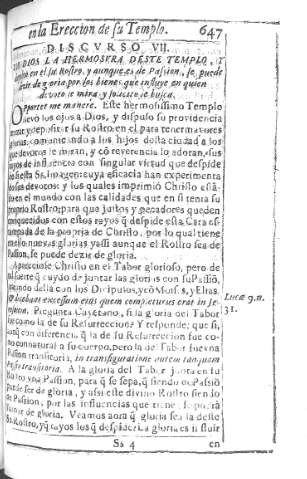 en la Ereccion de su Templo. 647
DISCVRSO VII.
DIOS LA HERMOSVRA DESTE TEMPLO, Y
en su Rostro, y aunque es de Passion, se puede
dezir de gloria por los bienes que influye en quien
devoto le mira, y le busca.
Oportet me manere. Este hermosissimo Templo
llevó los ojos a Dios, y dispuso su providencia
y depositar su Rostro en el para tener mayores
glorias, comunicando a los hijos desta ciudad, a los
que devotos le miran, y có reverencia lo adoran, sus
rayos de influencia con singular virtud que despide
esta S. Imagen; cuya eficacia han experimenta
do sus devotos: y los quales imprimió Christo está
en el mundo con las calidades que en si tenia su
proprio Rostro; para que justos y pecadores queden
enriquecidos con estos rayos q̃ despide esta Cara es-
tampada de la propria de Christo, por lo qual tiene
nuevas glorias, y assi aunque el Rostro sea de
Passion, se puede dezir de gloria.
Apareciose Christo en el Tabor glorioso, pero de
tal suerte q̃ cuydó de juntar las glorias con su Passió,
della con los Discipulos, y có Moyses, y Elias.
excessum eius quem completurus erat in Je- Lucæ 9. n.
Pregunta Cayetano, si la gloria del Tabor 31.
como la de su Resurreccion? Y responde: que si,
con diferencia, q̃ la de su Resurreccion fue co-
natural a su cuerpo, pero la de Tabor fue vna
Passion transitoria, in transfiguratione autem tanquam
passio transitoria. A la gloria del Tabor junta en su
Rostro vna Passion, para q̃ se sepa, q̃ siendo de Passió
puede ser de gloria, y assi este divino Rostro siendo
de Passion, por las influencias que tiene, se podrá
llamar de gloria. Veamos aora q̃ gloria sea la deste
S. Rostro, y q̃ rayos los q̃ despide: la gloria es influir
Ss 4 en